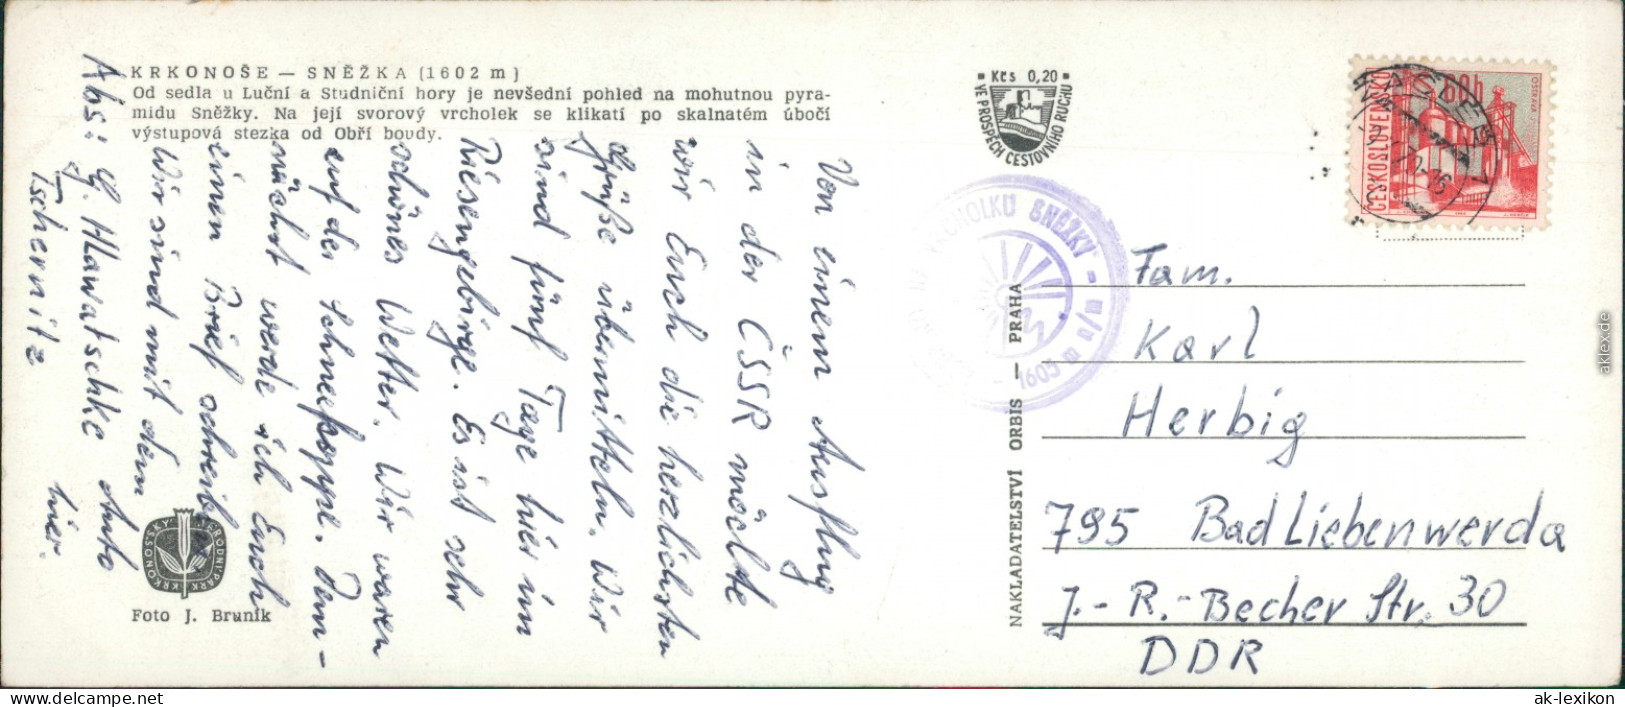 KRKONOŠE — SNĚŽKA (1602 m)
Od sedla u Luční a Studniční hory je nevšední pohled na mohutnou pyra-
midu Sněžky. Na její svorový vrcholek se klikatí po skalnatém úbočí
výstupová stezka od Obří boudy.
Von einem Ausflug
in der ČSSR möchte
wir Euch die herzlichsten
Grüße übermitteln. Wir
sind fünf Tage hier im
Riesengebirge. Es ist sehr
schönes Wetter. Wir waren
auf der Schneekoppe. Dem-
nächst werde ich Euch
einen Brief schreiben
Wir sind mit dem
Auto
hier.
Abs: G. Hlawatschke
Tschernitz
KRKONOŠSKÝ NÁRODNÍ PARK
Foto J. Bruník
Kčs 0,20
VE PROSPĚCH CESTOVNÍHO RUCHU
NAKLADATELSTVÍ ORBIS — PRAHA
VRCHOLKU SNĚŽKY
1603 m n/m
ČESKOSLOVENSKO
60h
Fam.
Karl
Herbig
795 Bad Liebenwerda
J.-R.-Becher Str. 30
DDR
aklex.de
www.delcampe.net
ak-lexikon